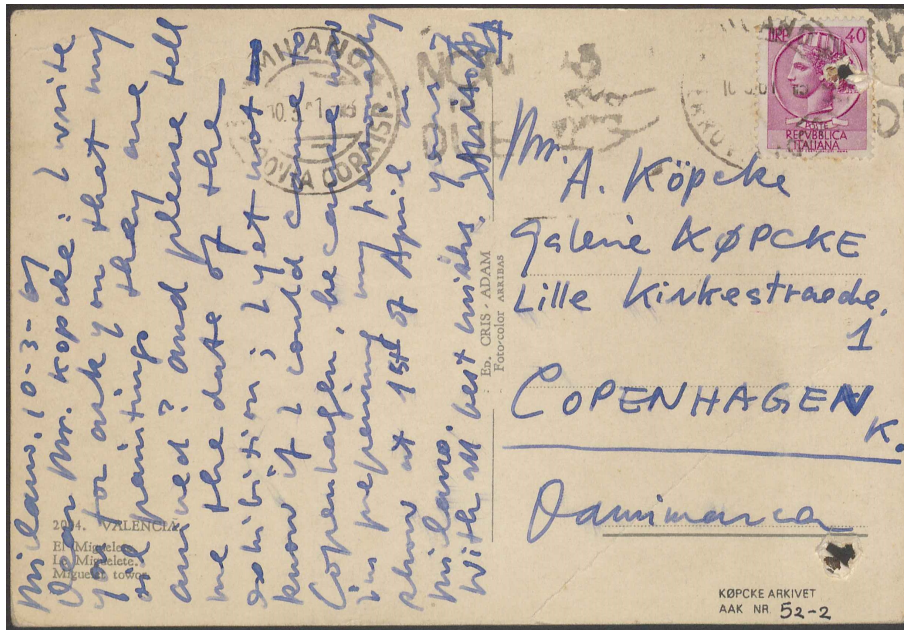 Milano, 10-3-61
Dear Mr. Köpcke: I write
you for ask you that my
oil paintings they are
arrived? and please tell
me the date of the
exhibition; I yet not
know if I could came to
Copenhagen, because now
i'm preparing my personaly
show at 1st of April in
Milano.
With all best wishs, yours
2004. VALENCIA
El Miguelete.
Le Miguelete.
Miguelet tower
ED. CRIS-ADAM
Foto-color ARRIBAS
MILANO
10.3.61
NON
DUE
LIRE 40
POSTE
REPVBBLICA
ITALIANA
Mr. A. Köpcke
Galerie KØPCKE
Lille Kinkestraede,
1
COPENHAGEN
K.
Danimarca
KØPCKE ARKIVET
AAK NR. 52-2